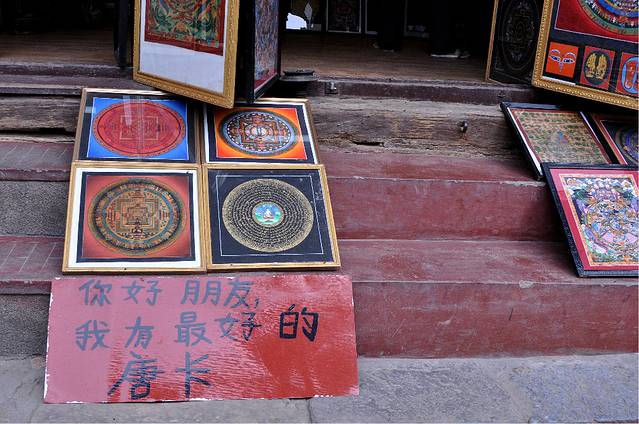 你好朋友,
我有最好的
唐卡